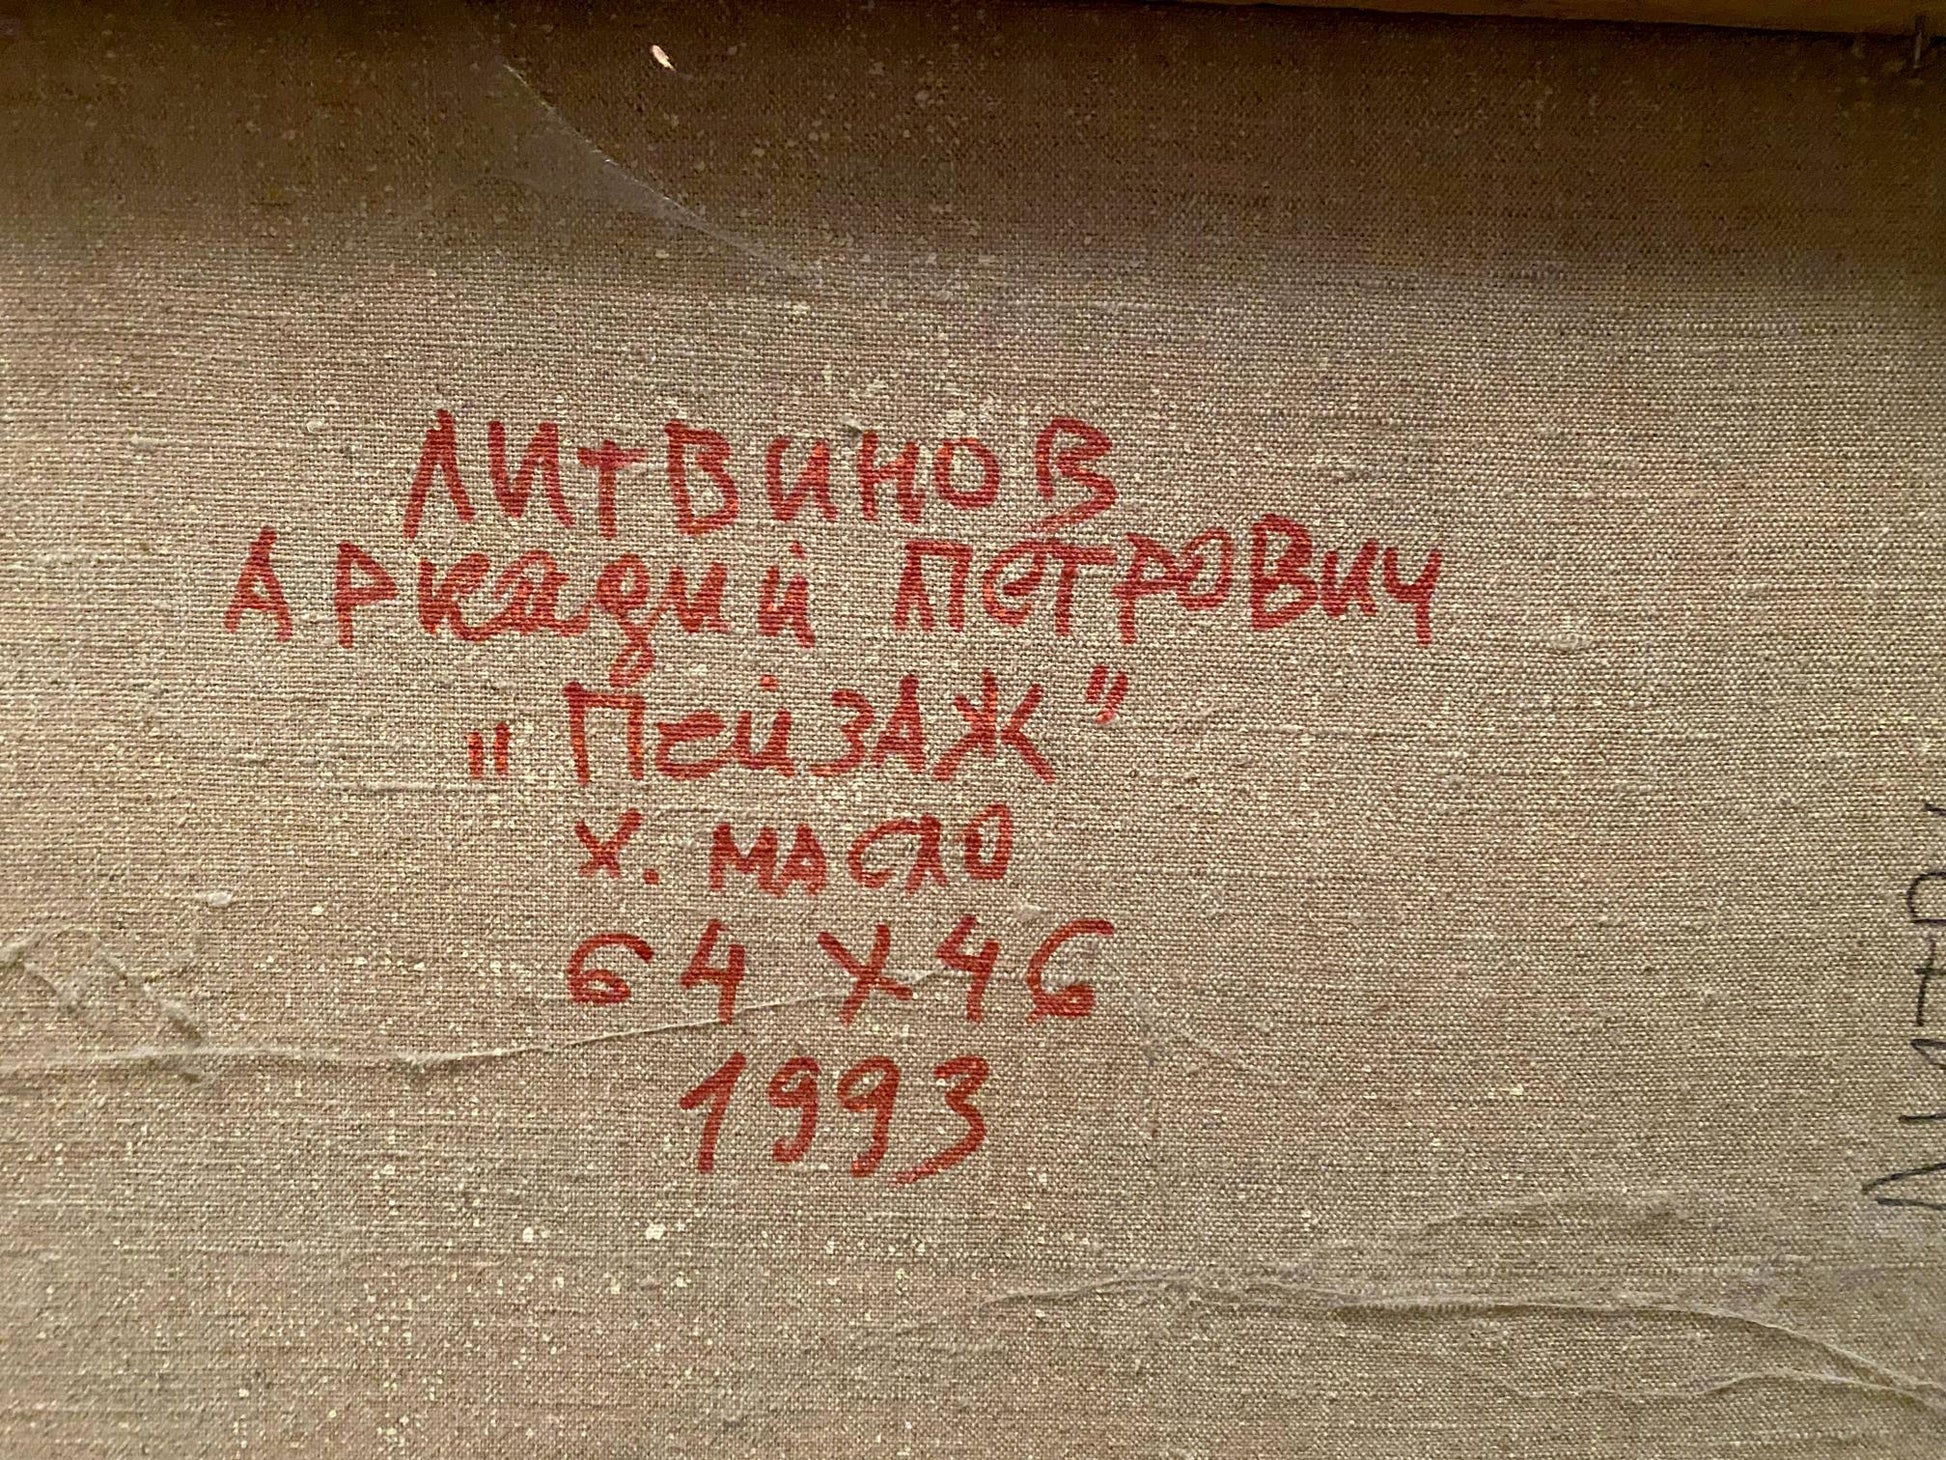 ЛИТВИНОВ
АРкадий ПЕТРОВИЧ
"ПЕЙЗАЖ"
Х. МАСЛО
64 Х 46
1993